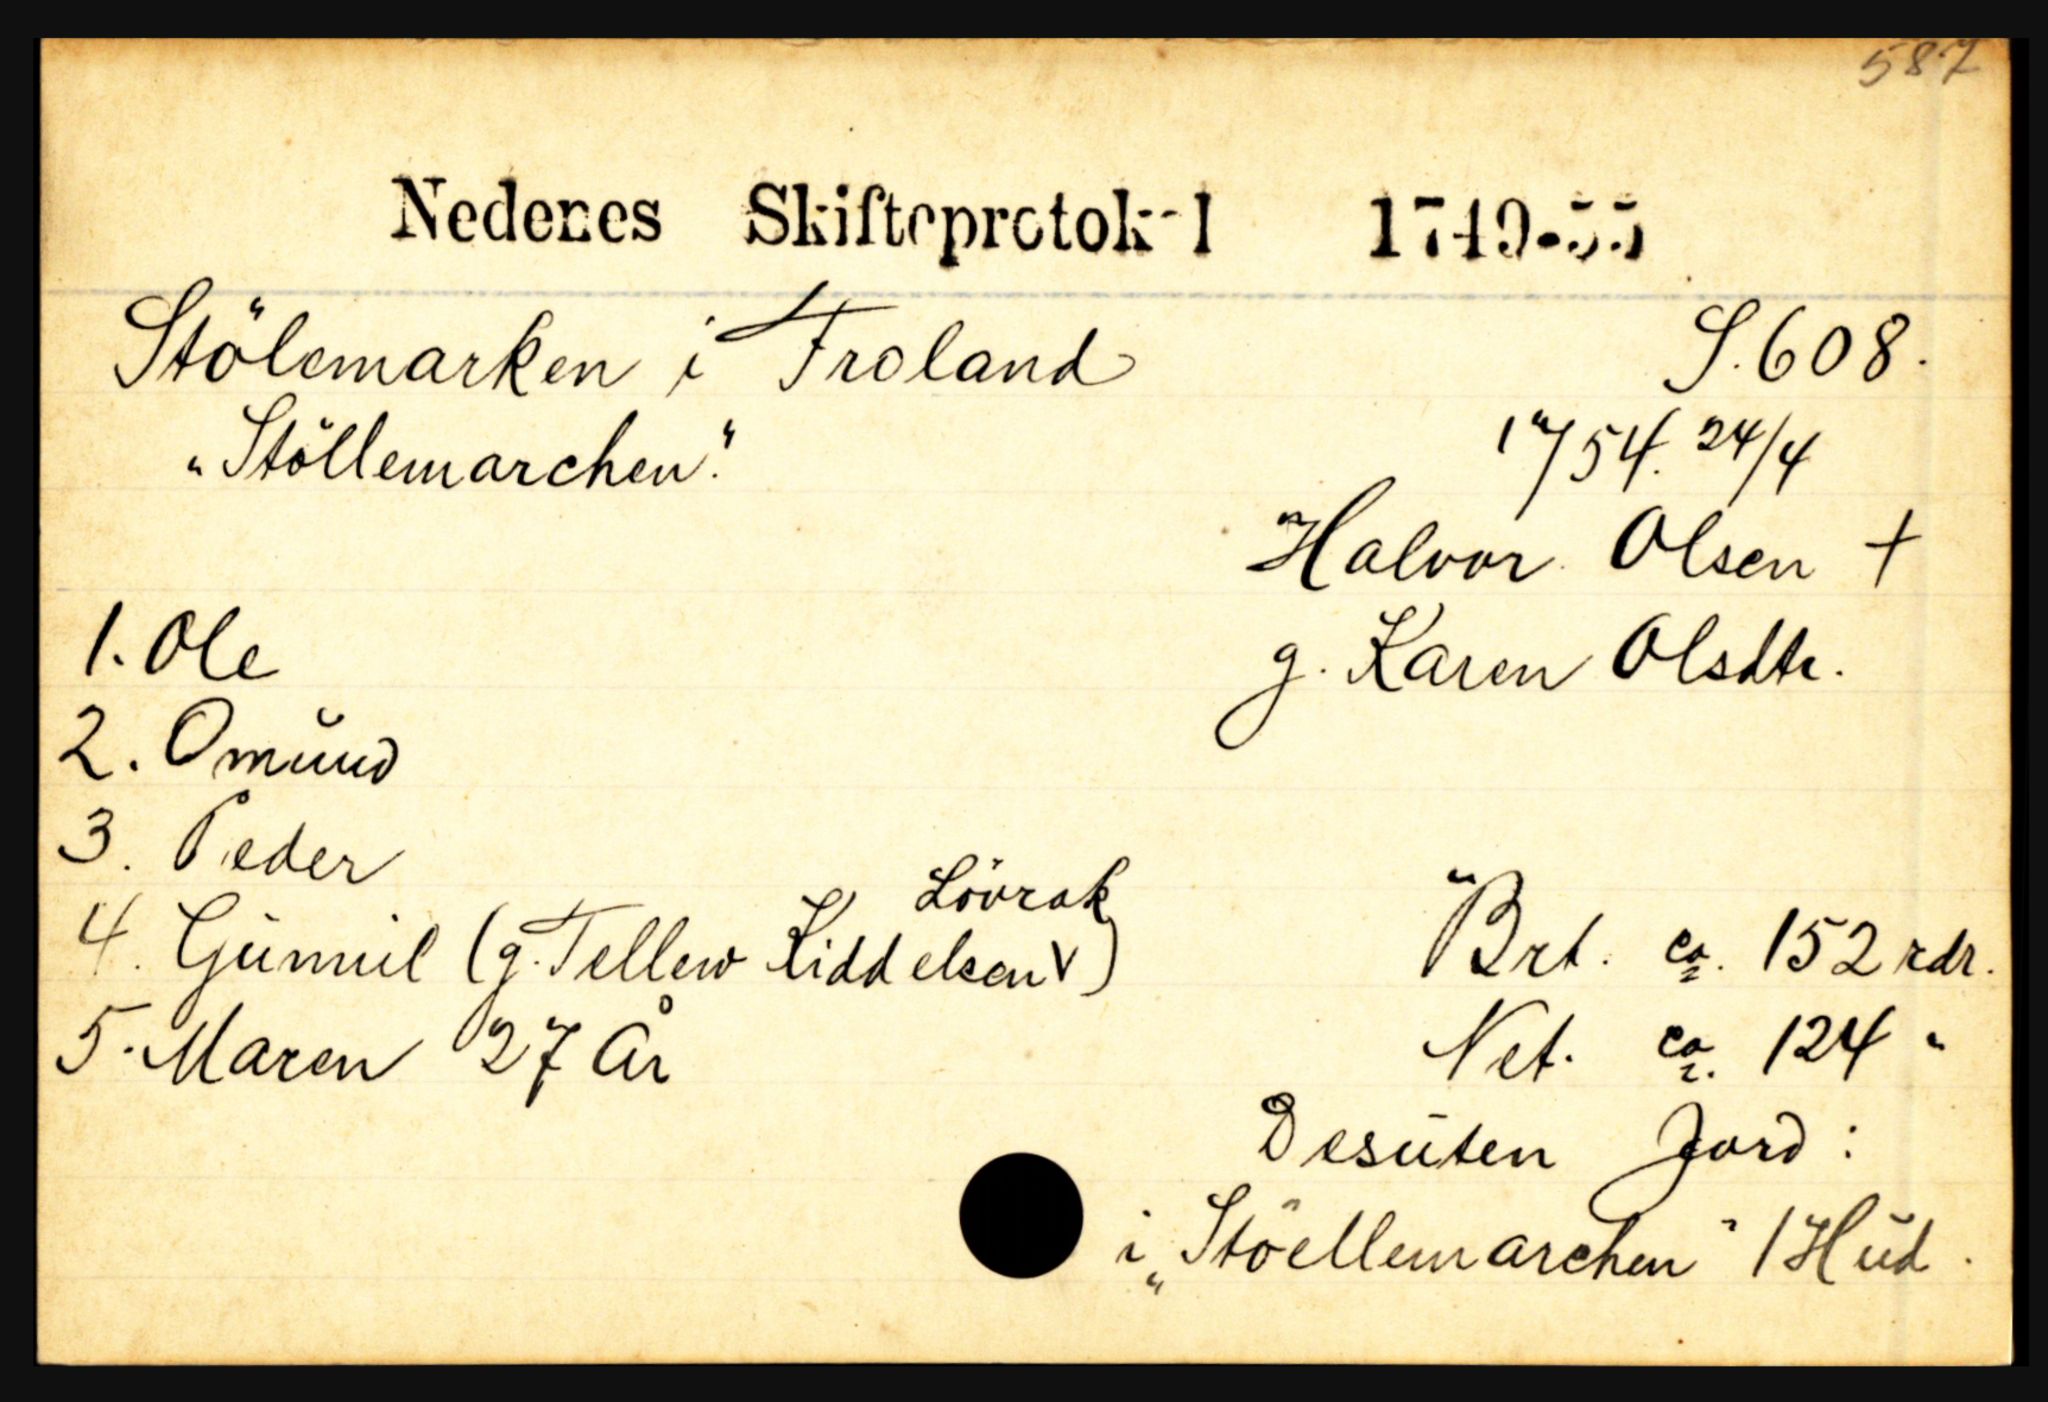 587
Nedenes Skifteprotokol 1749-55
Stölemarken i Froland S. 608.
"Stöllemarchen". 1754. 24/4
Halvor Olsen +
1. Ole g. Karen Olsdtr.
2. Omund
3. Peder
Lövrak
4. Gunnil (g. Tellew Kiddelsen V) Brt. ca. 152 rdr.
5. Maren 27 År Net. ca. 124 "
Desuten Jord:
i "Stöellemarchen" 1 Hud.